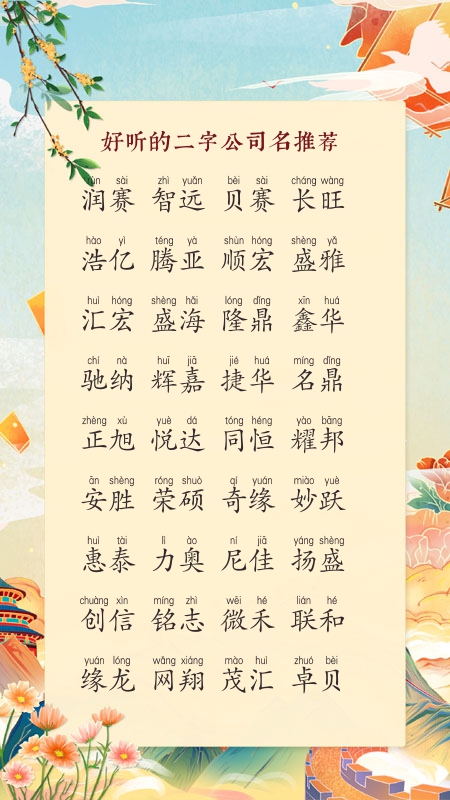 好听的二字公司名推荐
rùn sài zhì yuǎn bèi sài cháng wàng
润赛 智远 贝赛 长旺
hào yì téng yà shùn hóng shèng yǎ
浩亿 腾亚 顺宏 盛雅
huì hóng shèng hǎi lóng dǐng xīn huá
汇宏 盛海 隆鼎 鑫华
chí nà huī jiā jié huá míng dǐng
驰纳 辉嘉 捷华 名鼎
zhèng xù yuè dá tóng héng yào bāng
正旭 悦达 同恒 耀邦
ān shèng róng shuò qí yuán miào yuè
安胜 荣硕 奇缘 妙跃
huì tài lì ào ní jiā yáng shèng
惠泰 力奥 尼佳 扬盛
chuàng xìn míng zhì wēi hé lián hé
创信 铭志 微禾 联和
yuán lóng wǎng xiáng mào huì zhuó bèi
缘龙 网翔 茂汇 卓贝